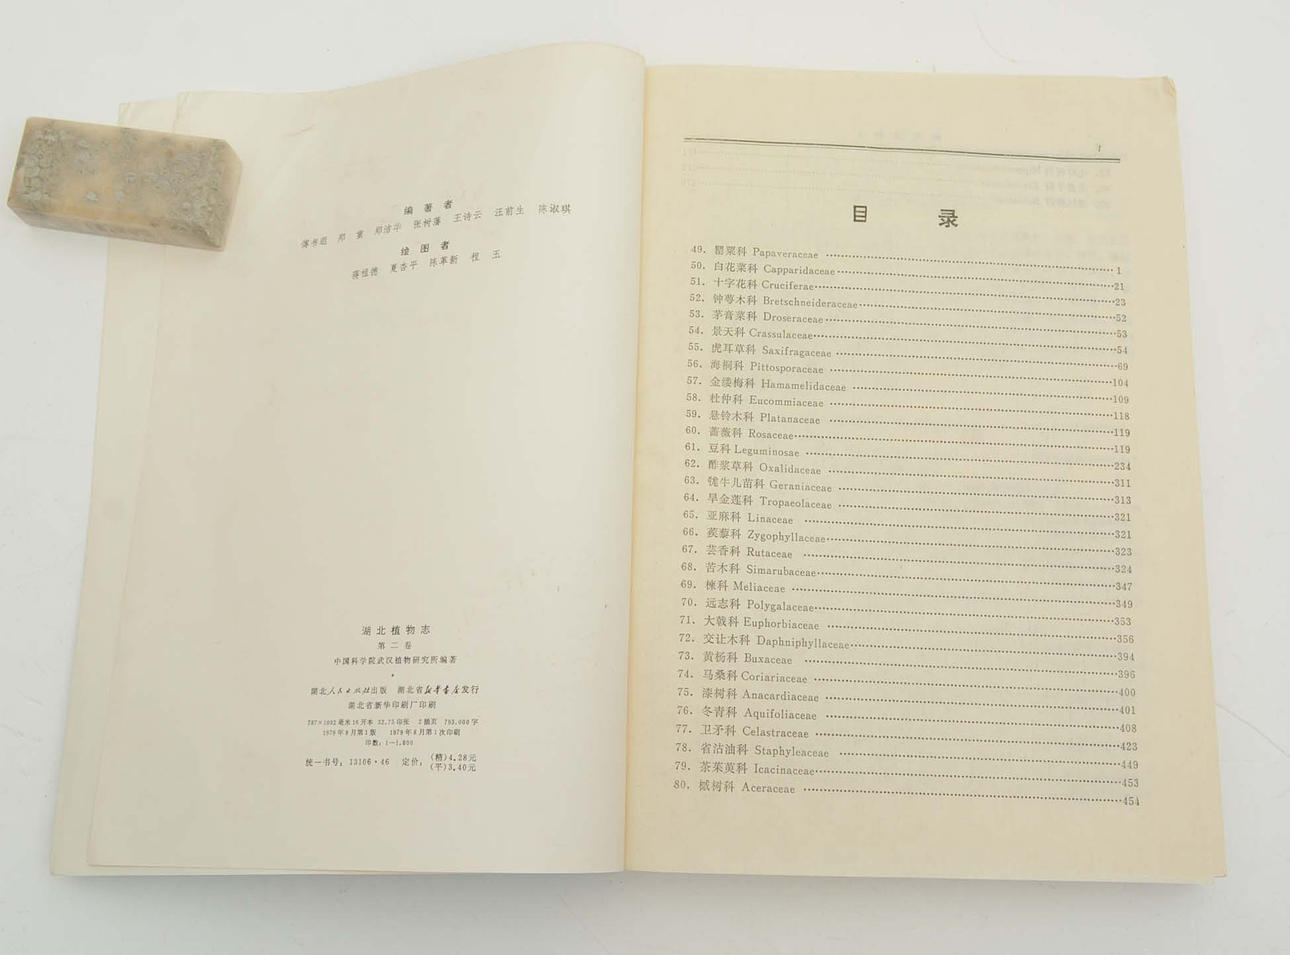 编著者
傅书遐 郑 重 郑洁华 张树藩 王诗云 汪前生 陈淑琪
绘图者
蒋祖德 夏杏平 陈革新 程 玉
湖北植物志
第二卷
中国科学院武汉植物研究所编著
湖北人民出版社出版 湖北省新华书店发行
湖北省新华印刷厂印刷
787×1092毫米16开本 32.75印张 2插页 793,000字
1979年8月第1版 1979年8月第1次印刷
印数：1—1,800
统一书号：13106·46 定价：(精)4.28元
(平)3.40元
1
目录
49. 罂粟科 Papaveraceae 1
50. 白花菜科 Capparidaceae 21
51. 十字花科 Cruciferae 23
52. 钟萼木科 Bretschneideraceae 52
53. 茅膏菜科 Droseraceae 53
54. 景天科 Crassulaceae 54
55. 虎耳草科 Saxifragaceae 69
56. 海桐科 Pittosporaceae 104
57. 金缕梅科 Hamamelidaceae 109
58. 杜仲科 Eucommiaceae 118
59. 悬铃木科 Platanaceae 119
60. 蔷薇科 Rosaceae 119
61. 豆科 Leguminosae 234
62. 酢浆草科 Oxalidaceae 311
63. 牻牛儿苗科 Geraniaceae 313
64. 旱金莲科 Tropaeolaceae 321
65. 亚麻科 Linaceae 321
66. 蒺藜科 Zygophyllaceae 323
67. 芸香科 Rutaceae 324
68. 苦木科 Simarubaceae 347
69. 楝科 Meliaceae 349
70. 远志科 Polygalaceae 353
71. 大戟科 Euphorbiaceae 356
72. 交让木科 Daphniphyllaceae 394
73. 黄杨科 Buxaceae 396
74. 马桑科 Coriariaceae 400
75. 漆树科 Anacardiaceae 401
76. 冬青科 Aquifoliaceae 408
77. 卫矛科 Celastraceae 423
78. 省沽油科 Staphyleaceae 449
79. 茶茱萸科 Icacinaceae 453
80. 槭树科 Aceraceae 454